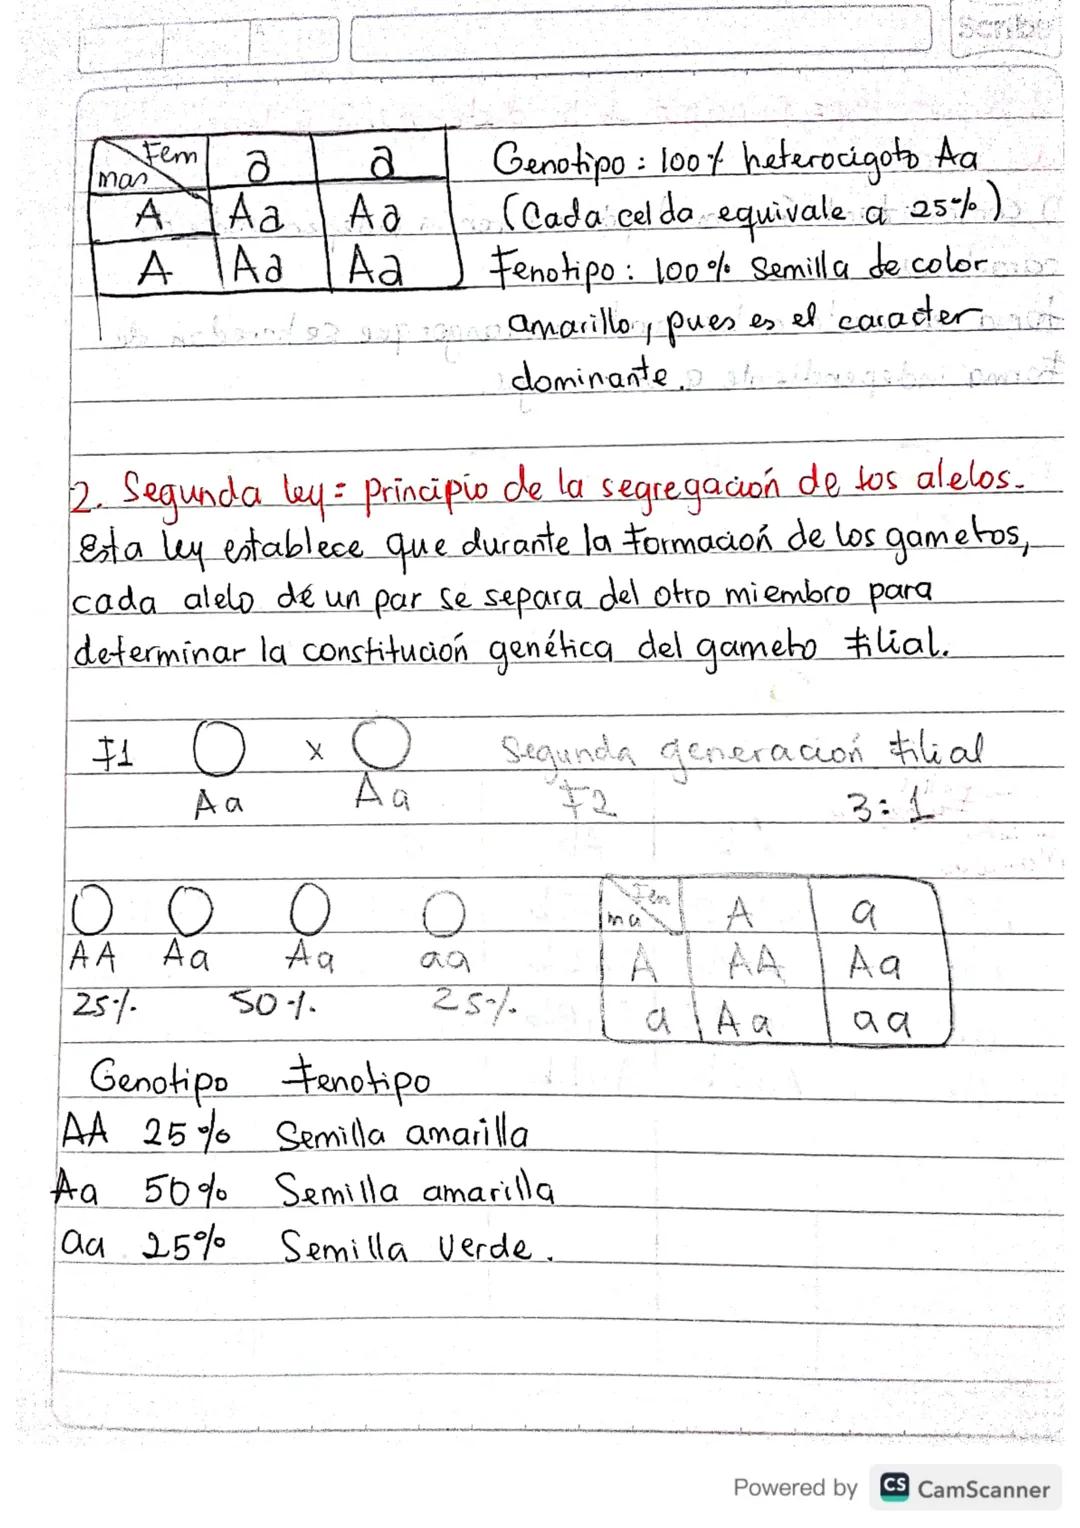 Scribe
Fem a a
mas
A Aa Aa
A Aa Aa
Genotipo : 100% heterocigoto Aa
(Cada celda equivale a 25%)
Fenotipo : 100% Semilla de color
amarillo, pues es el caracter
dominante.
2. Segunda ley = principio de la segregación de los alelos.
esta ley establece que durante la formación de los gametos,
cada alelo de un par se separa del otro miembro para
determinar la constitución genética del gameto filial.
F1 x Segunda generación filial
Aa Aa F2 3:1
AA Aa Aa aa
25% 50% 25%
Fem A a
ma
A AA Aa
a Aa aa
Genotipo Fenotipo
AA 25% Semilla amarilla
Aa 50% Semilla amarilla
aa 25% Semilla verde.
Powered by CS CamScanner